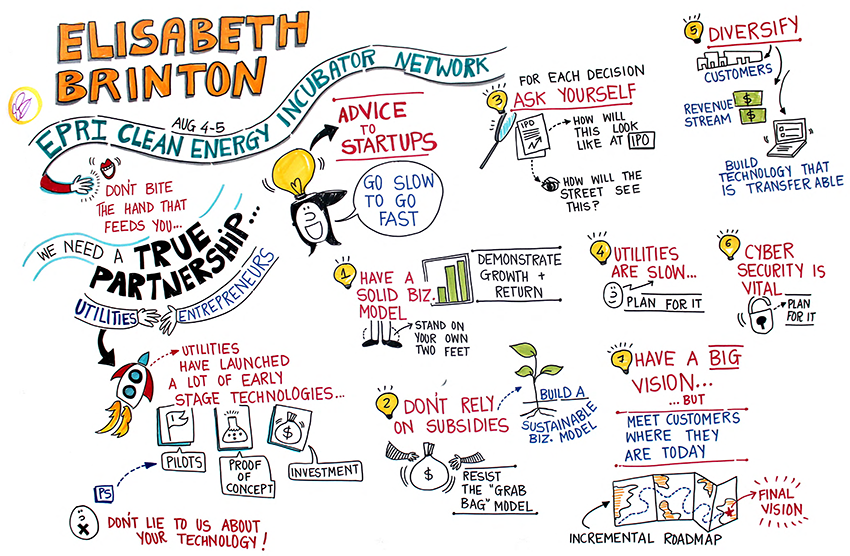 ELISABETH
BRINTON
EPRI CLEAN ENERGY INCUBATOR NETWORK
AUG 4-5
DON'T BITE
THE HAND THAT
FEEDS YOU...
WE NEED A TRUE
PARTNERSHIP...
UTILITIES
ENTREPRENEURS
UTILITIES
HAVE LAUNCHED
A LOT OF EARLY
STAGE TECHNOLOGIES...
PILOTS
PROOF
OF
CONCEPT
$
INVESTMENT
PS
DON'T LIE TO US ABOUT
YOUR TECHNOLOGY!
ADVICE
TO
STARTUPS
GO SLOW
TO GO
FAST
1
HAVE A
SOLID BIZ.
MODEL
DEMONSTRATE
GROWTH +
RETURN
STAND ON
YOUR OWN
TWO FEET
2
DON'T RELY
ON SUBSIDIES
BUILD A
SUSTAINABLE
BIZ. MODEL
$
RESIST
THE "GRAB
BAG" MODEL
3
FOR EACH DECISION
ASK YOURSELF
IPO
HOW WILL
THIS LOOK
LIKE AT IPO
HOW WILL THE
STREET SEE
THIS?
4
UTILITIES
ARE SLOW...
PLAN FOR IT
5
DIVERSIFY
CUSTOMERS
REVENUE
STREAM
$
$
BUILD
TECHNOLOGY THAT
IS TRANSFERABLE
6
CYBER
SECURITY IS
VITAL
PLAN
FOR IT
7
HAVE A BIG
VISION...
...BUT
MEET CUSTOMERS
WHERE THEY
ARE TODAY
FINAL
VISION
INCREMENTAL ROADMAP